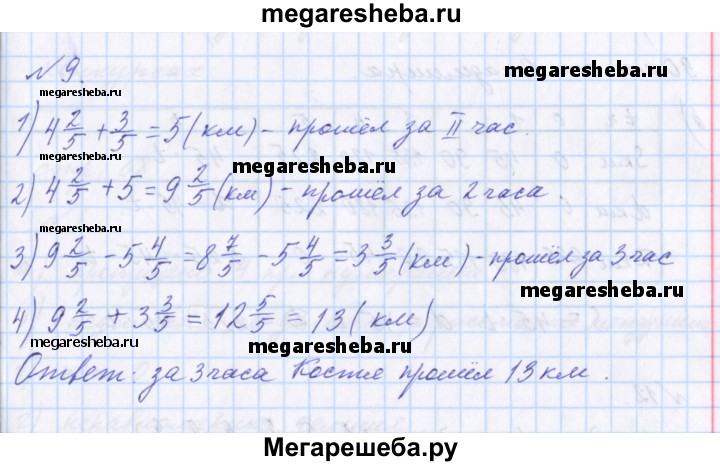 megaresheba.ru
№ 9.
megaresheba.ru
megaresheba.ru
1) 4 2/5 + 3/5 = 5 (км) - прошёл за II час.
megaresheba.ru
2) 4 2/5 + 5 = 9 2/5 (км) - прошёл за 2 часа.
megaresheba.ru
3) 9 2/5 - 5 4/5 = 8 7/5 - 5 4/5 = 3 3/5 (км) - прошёл за 3 час
4) 9 2/5 + 3 3/5 = 12 5/5 = 13 (км)
megaresheba.ru
megaresheba.ru
Ответ: за 3 часа Костя прошёл 13 км.
Мегарешеба.ру